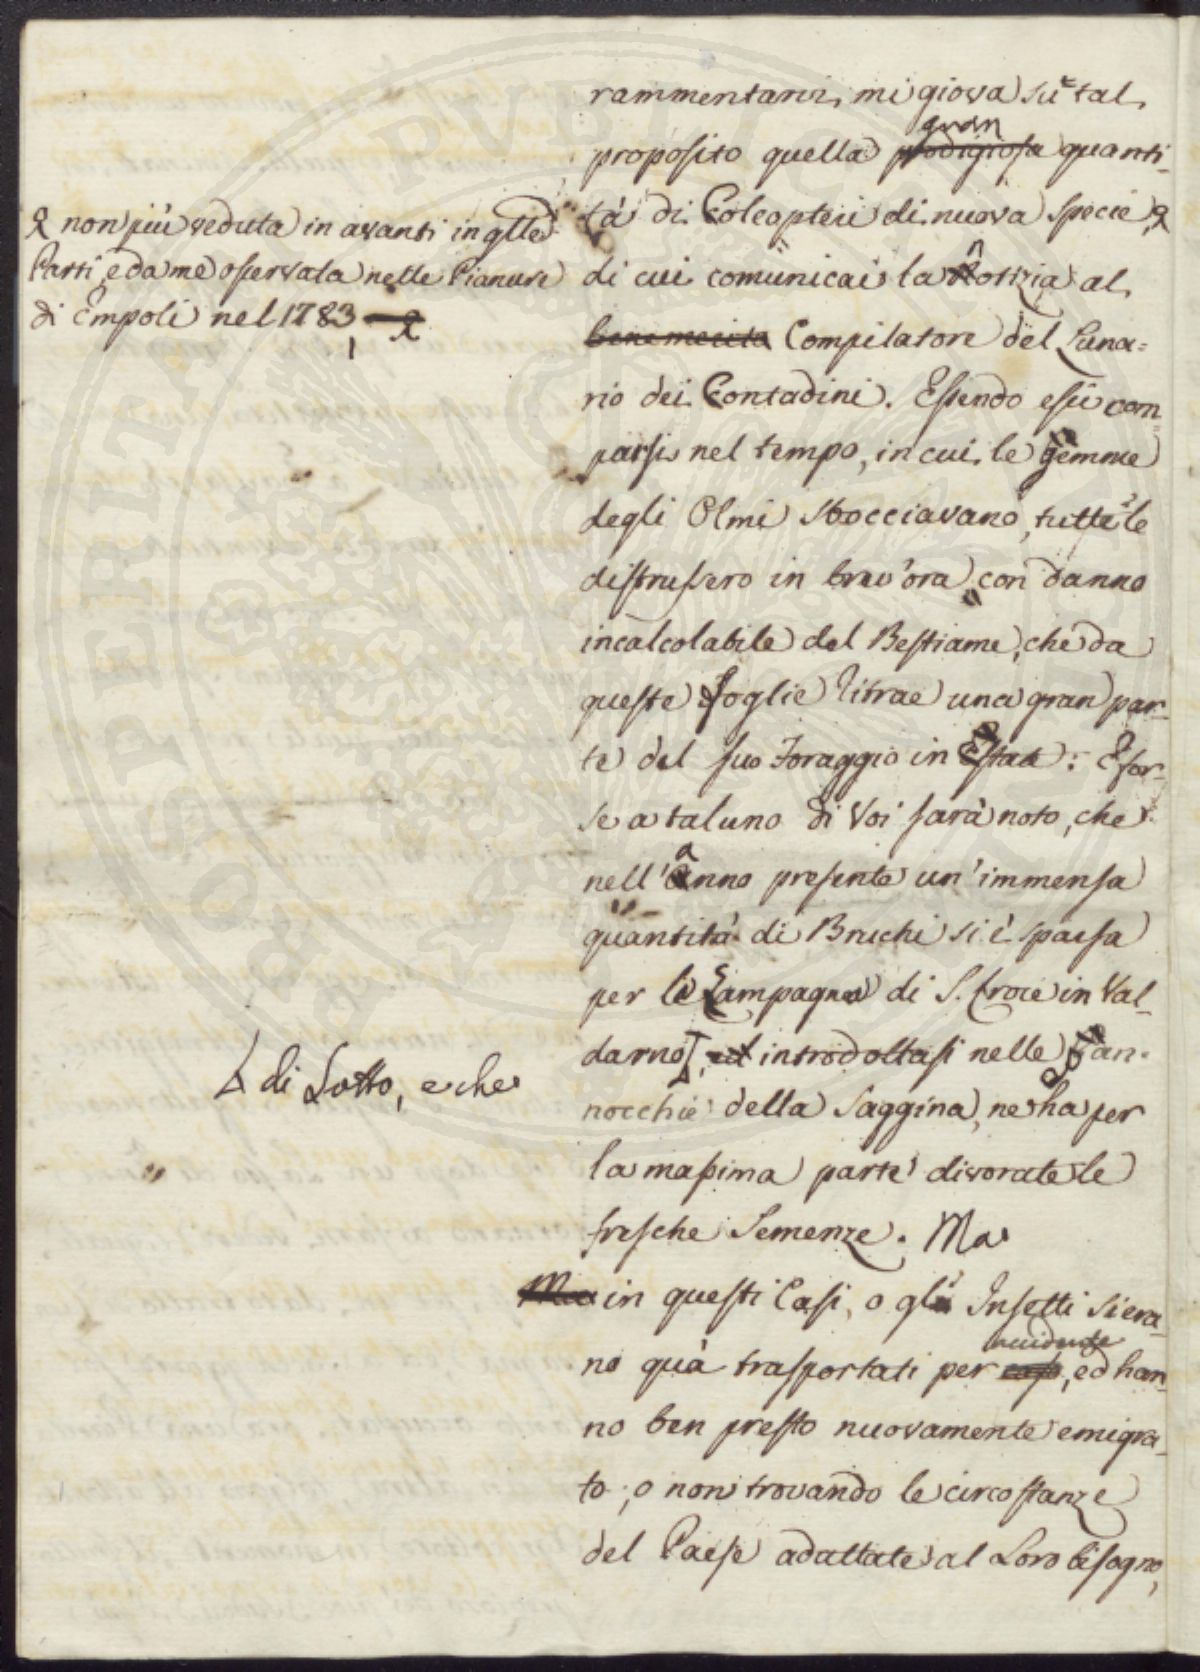 rammentarvi mi giova sù tal
gran
proposito quella prodigiosa quanti-
tà di Coleopteri di nuova specie,
non più veduta in avanti in qlle
Parti, e da me osservata nelle Pianure
di Empoli nel 1783,
di cui comunicai la notizia al
benemerito Compilatore del Luna=
rio dei Contadini. Essendo essi com-
parsi nel tempo, in cui le gemme
degli Olmi sbocciavano, tutte le
distrussero in brev'ora con danno
incalcolabile del Bestiame, che da
queste foglie ritrae una gran par-
te del suo Foraggio in Estate: E for-
se a taluno di Voi sarà noto, che
nell'anno presente un'immensa
quantità di Bruchi si è sparsa
per le Campagne di S. Croce in Val-
darno, ed introdottasi nelle Pan-
di Sotto, e che
nocchie della Saggina, ne ha per
la massima parte divorate le
fresche Semenze. Ma
Ma in questi Casi, o gli Insetti si era-
accidente
no quà trasportati per caso, ed han-
no ben presto nuovamente emigra-
to; o non trovando le circostanze
del Paese adattate al Loro bisogno,